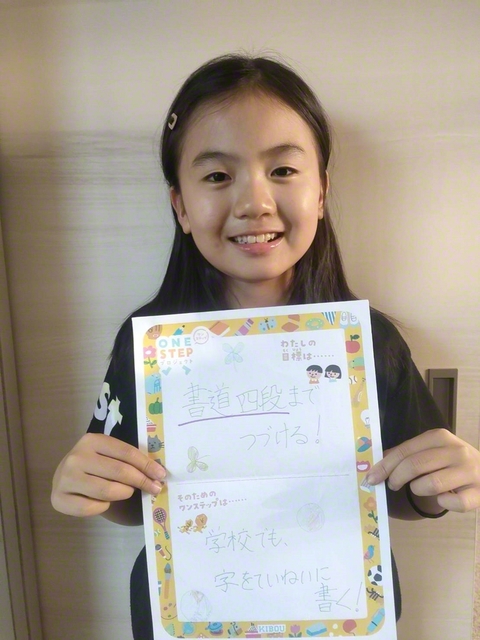 ONE
STEP
プロジェクト
わたしの
目標は……
書道四段まで
つづける!
そのための
ワンステップは……
学校でも、
字をていねいに
書く!
KIBOU